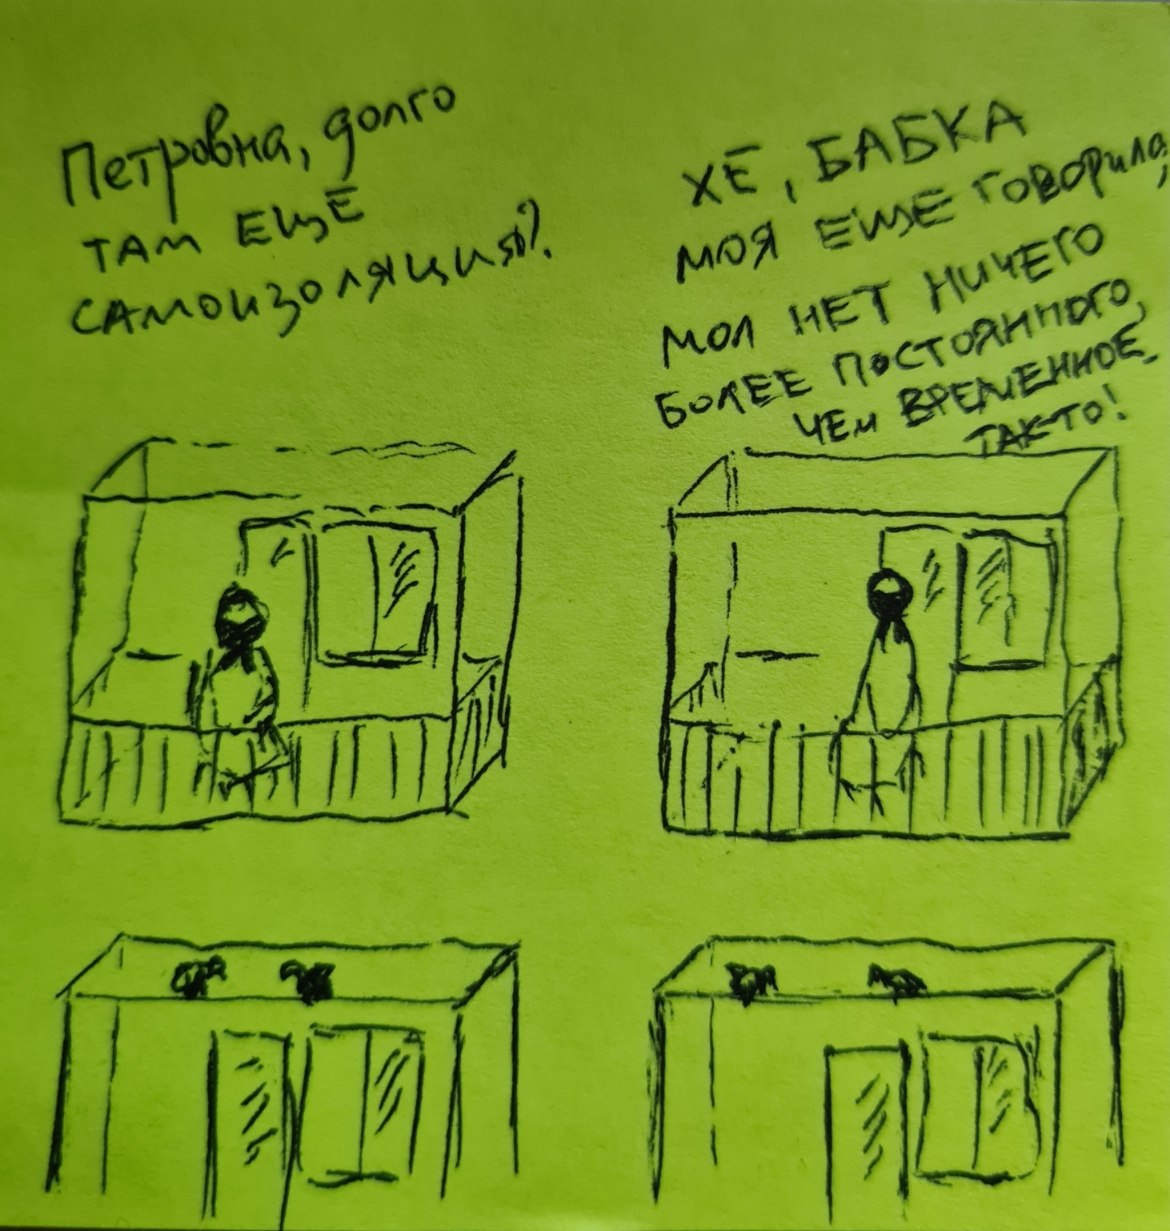 Петровна, долго
там ещё
самоизоляция?
Хе, бабка
моя еще говорила,
мол нет ничего
более постоянного,
чем временное,
так-то!